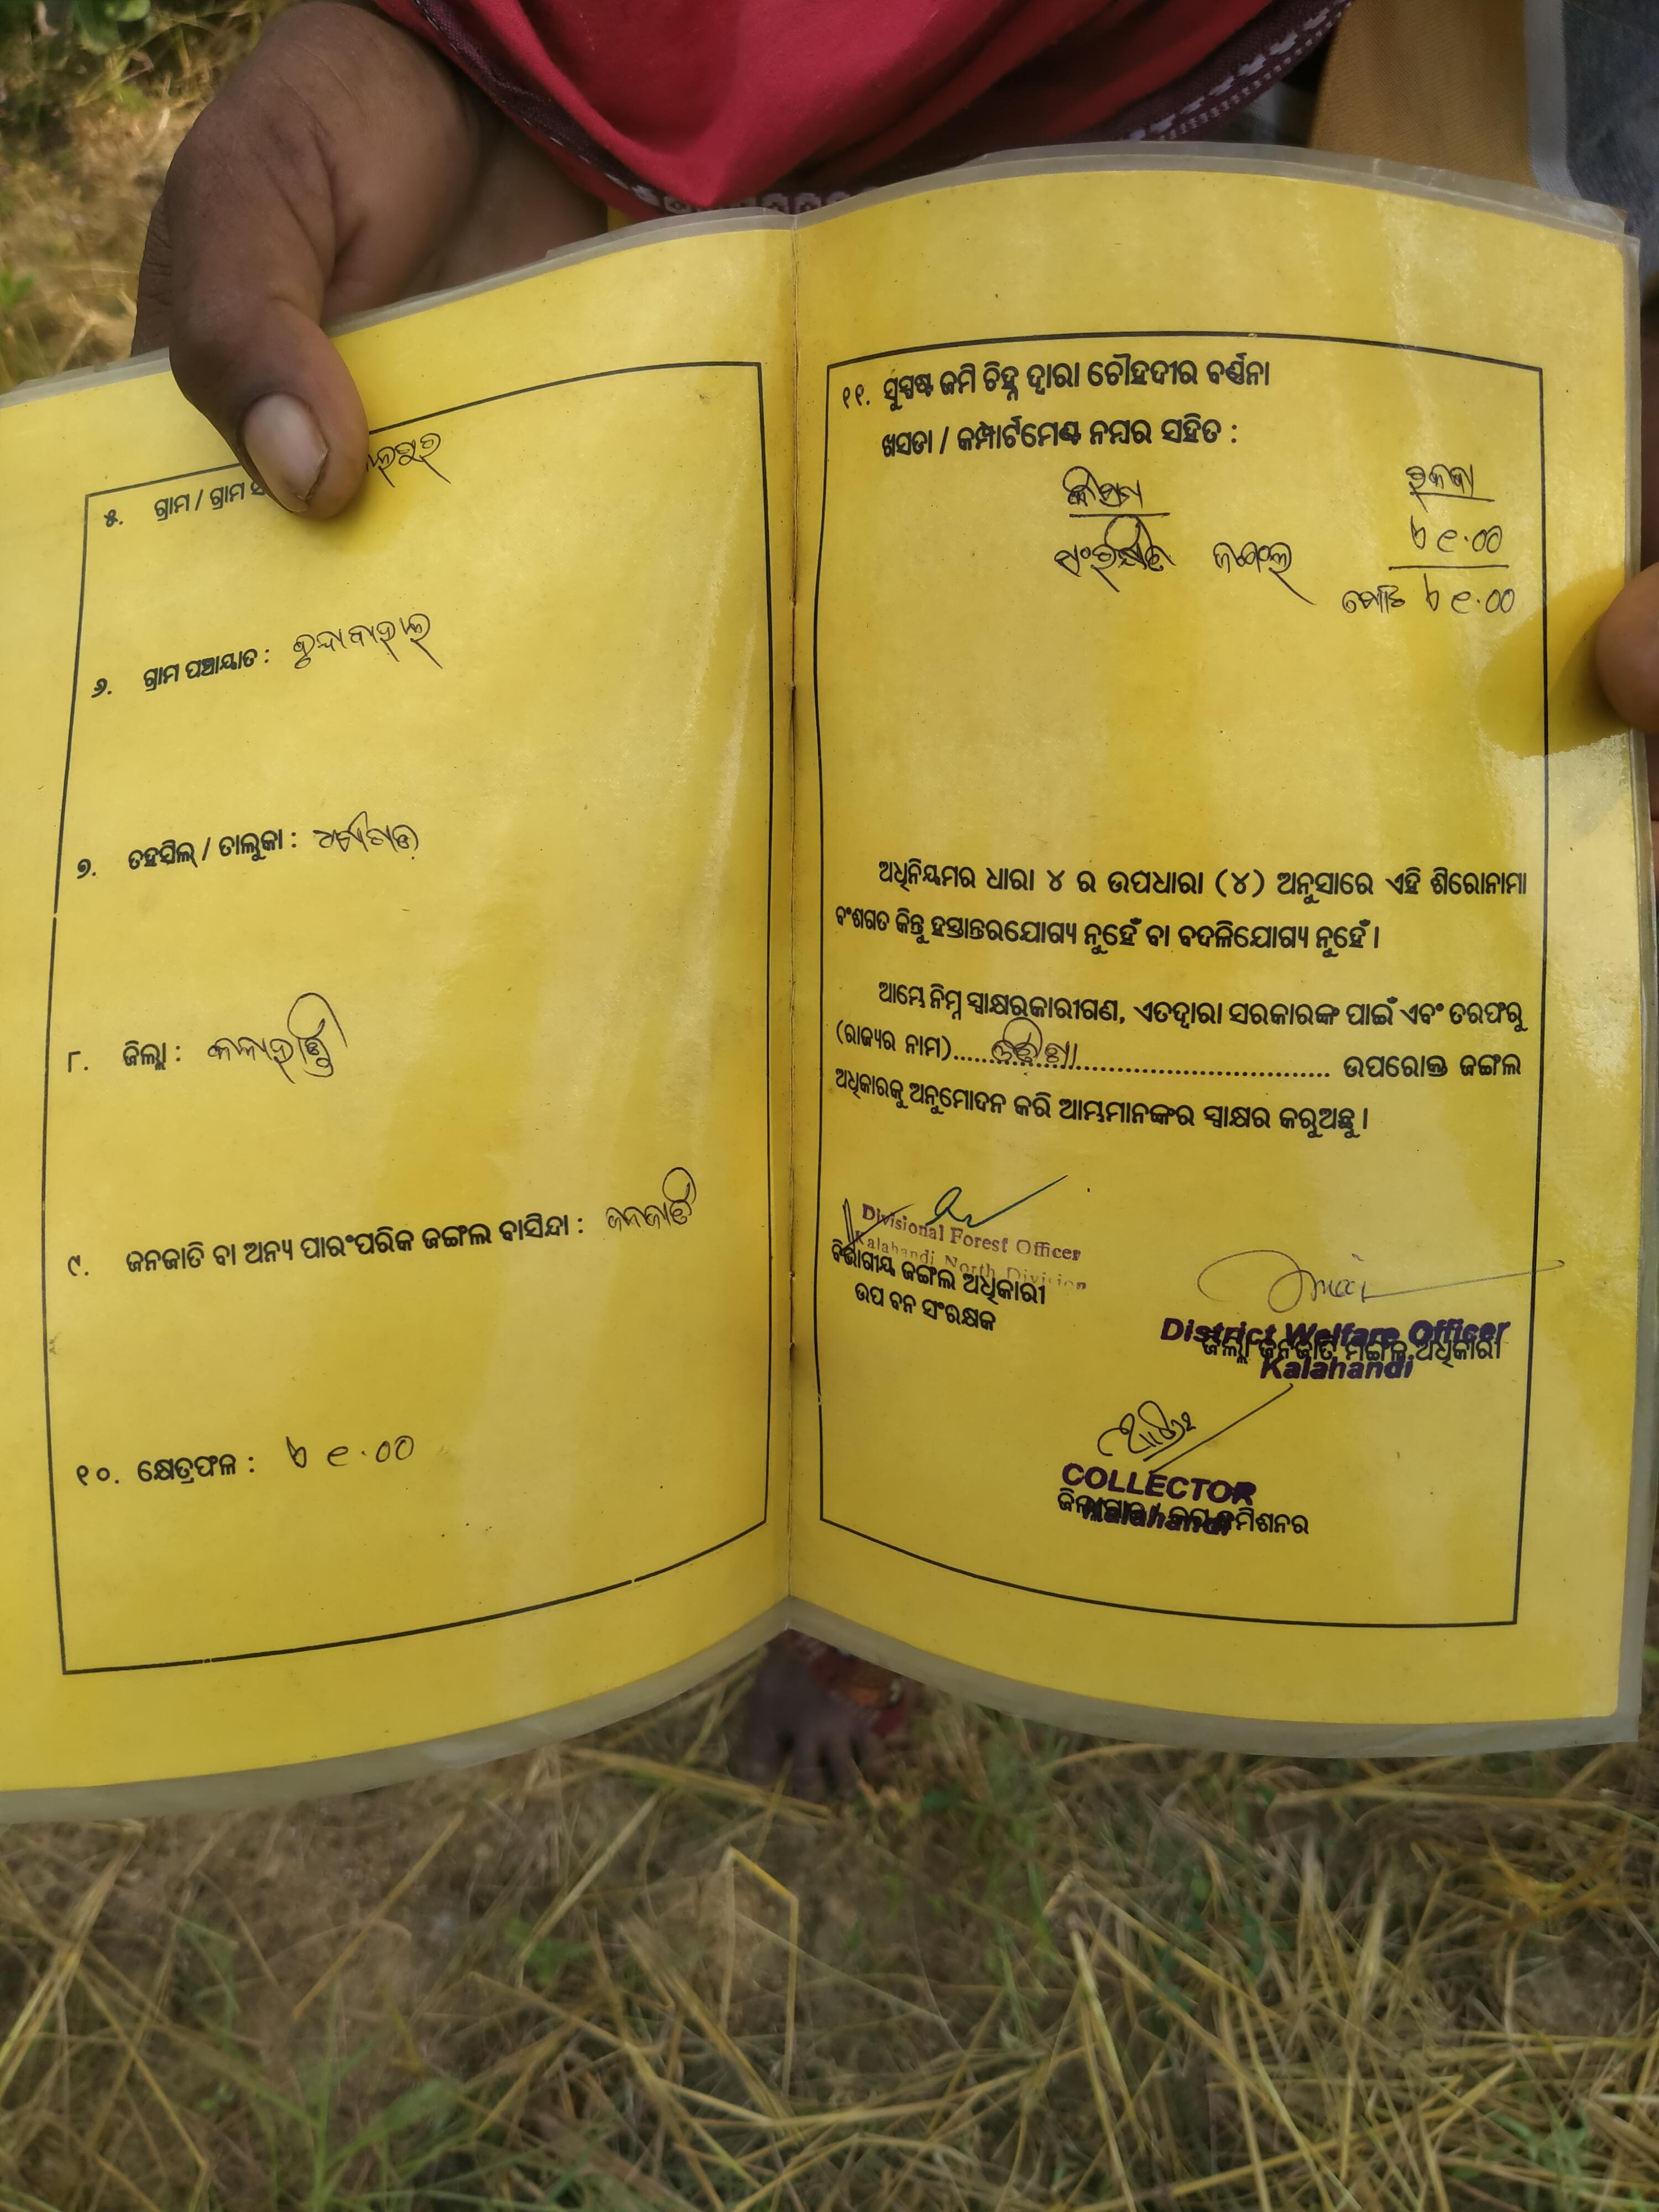 ୫. ଗ୍ରାମ / ଗ୍ରାମ
୬. ଗ୍ରାମ ପଞ୍ଚାୟାତ :
୭. ତହସିଲ୍ / ତାଲୁକା :
୮. ଜିଲ୍ଲା : କଳାହାଣ୍ଡି
୯. ଜନଜାତି ବା ଅନ୍ୟ ପାରଂପରିକ ଜଙ୍ଗଲ ବାସିନ୍ଦା : ଜନଜାତି
୧୦. କ୍ଷେତ୍ରଫଳ :
୧୧. ସୁସ୍ପଷ୍ଟ ଜମି ଚିହ୍ନ ଦ୍ୱାରା ଚୌହଦୀର ବର୍ଣ୍ଣନା
ଖସଡା / କମ୍ପାର୍ଟମେଣ୍ଟ ନମ୍ବର ସହିତ :
କିସମ ରକବା
ସଂରକ୍ଷିତ ଜଙ୍ଗଲ
ମୋଟ
ଅଧିନିୟମର ଧାରା ୪ ର ଉପଧାରା (୪) ଅନୁସାରେ ଏହି ଶିରୋନାମା
ବଂଶଗତ କିନ୍ତୁ ହସ୍ତାନ୍ତରଯୋଗ୍ୟ ନୁହେଁ ବା ବଦଳିଯୋଗ୍ୟ ନୁହେଁ ।
ଆମ୍ଭେ ନିମ୍ନ ସ୍ୱାକ୍ଷରକାରୀଗଣ, ଏତଦ୍ୱାରା ସରକାରଙ୍କ ପାଇଁ ଏବଂ ତରଫରୁ
(ରାଜ୍ୟର ନାମ)....ଓଡ଼ିଶା.... ଉପରୋକ୍ତ ଜଙ୍ଗଲ
ଅଧିକାରକୁ ଅନୁମୋଦନ କରି ଆମ୍ଭମାନଙ୍କର ସ୍ୱାକ୍ଷର କରୁଅଛୁ ।
Divisional Forest Officer
Kalahandi North Division
ବିଭାଗୀୟ ଜଙ୍ଗଲ ଅଧିକାରୀ
ଉପ ବନ ସଂରକ୍ଷକ
District Welfare Officer
ଜିଲ୍ଲା ଜନଜାତି ମଙ୍ଗଳ ଅଧିକାରୀ
Kalahandi
COLLECTOR
Kalahandi